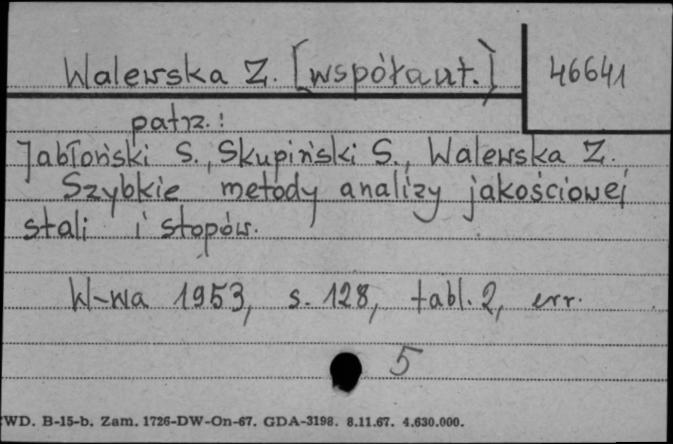 Walewska Z. [współaut.] 46641
patrz.:
Jabłoński S., Skupiński S., Walewska Z.
Szybkie metody analizy jakościowej
stali i stopów.
W-wa 1953, s. 128, tabl. 2, err.
5
WD. B-15-b. Zam. 1726-DW-On-67. GDA-3198. 8.11.67. 4.630.000.